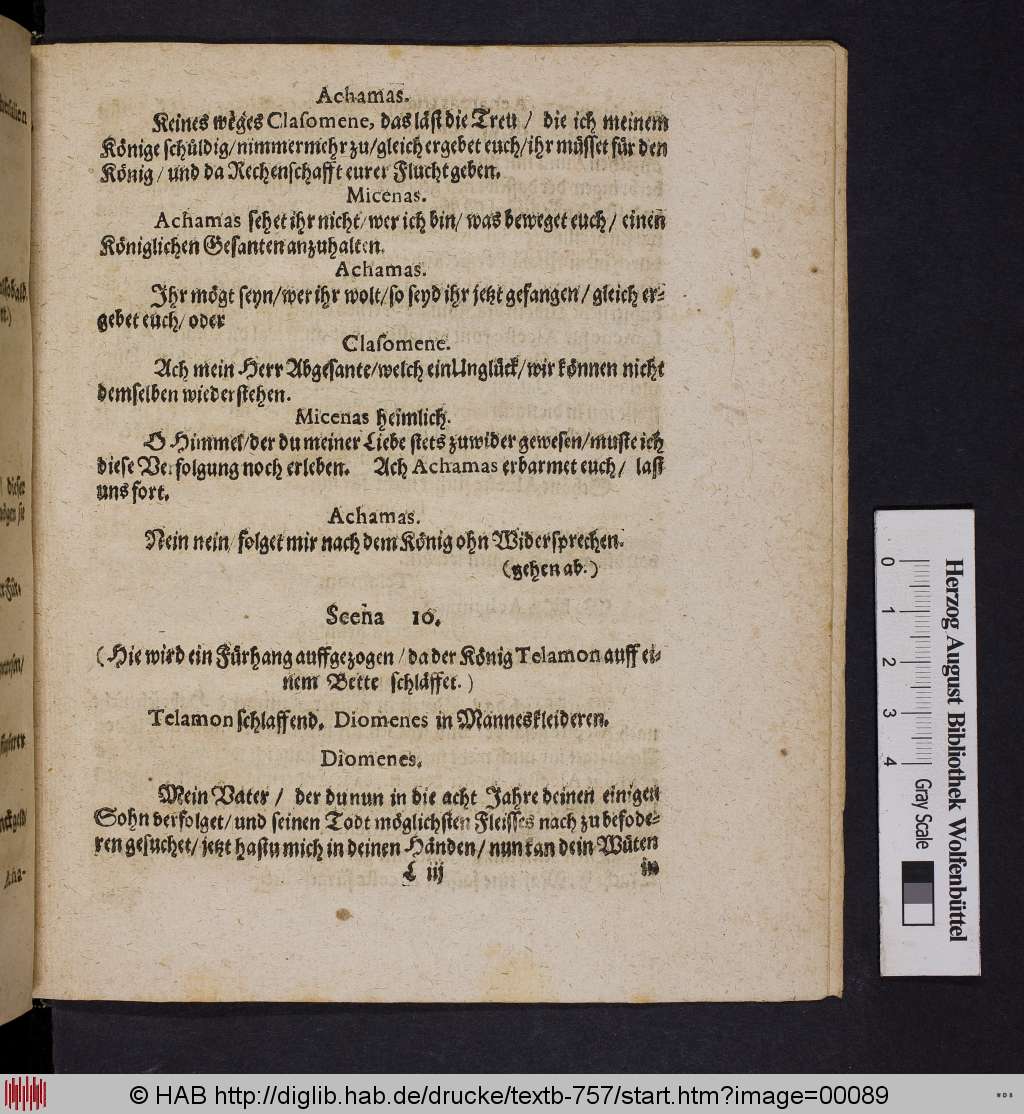 Achamas.
Keines wèges Clasomene, das läst die Treu / die ich meinem
Könige schüldig/nimmermehr zu/gleich ergebet euch/ihr müsset für den
König / und da Rechenschafft eurer Flucht geben.
Micenas.
Achamas sehet ihr nicht/wer ich bin/ was beweget euch/ einen
Königlichen Gesanten anzuhalten.
Achamas.
Ihr mögt seyn/wer ihr wolt/so seyd ihr jetzt gefangen/ gleich er-
gebet euch/ oder
Clasomene.
Ach mein Herr Abgesante/welch ein Unglück/wir können nicht
demselben wiederstehen.
Micenas heimlich.
O Himmel/der du meiner Liebe stets zuwider gewesen/muste ich
diese Verfolgung noch erleben. Ach Achamas erbarmet euch/ last
uns fort.
Achamas.
Nein nein/ folget mir nach dem König ohn Widersprechen.
(gehen ab.)
Scena 10.
(Hie wird ein Fürhang auffgezogen/da der König Telamon auff ei-
nem Bette schläffet.)
Telamon schlaffend. Diomenes in Manneskleideren.
Diomenes.
Mein Vater / der du nun in die acht Jahre deinen einigen
Sohn verfolget/und seinen Todt möglichsten Fleisses nach zu befode-
ren gesuchet/jetzt hastu mich in deinen Händen/nun kan dein Wüten
L iij in
Herzog August Bibliothek Wolfenbüttel
0 1 2 3 4 Gray Scale
© HAB http://diglib.hab.de/drucke/textb-757/start.htm?image=00089